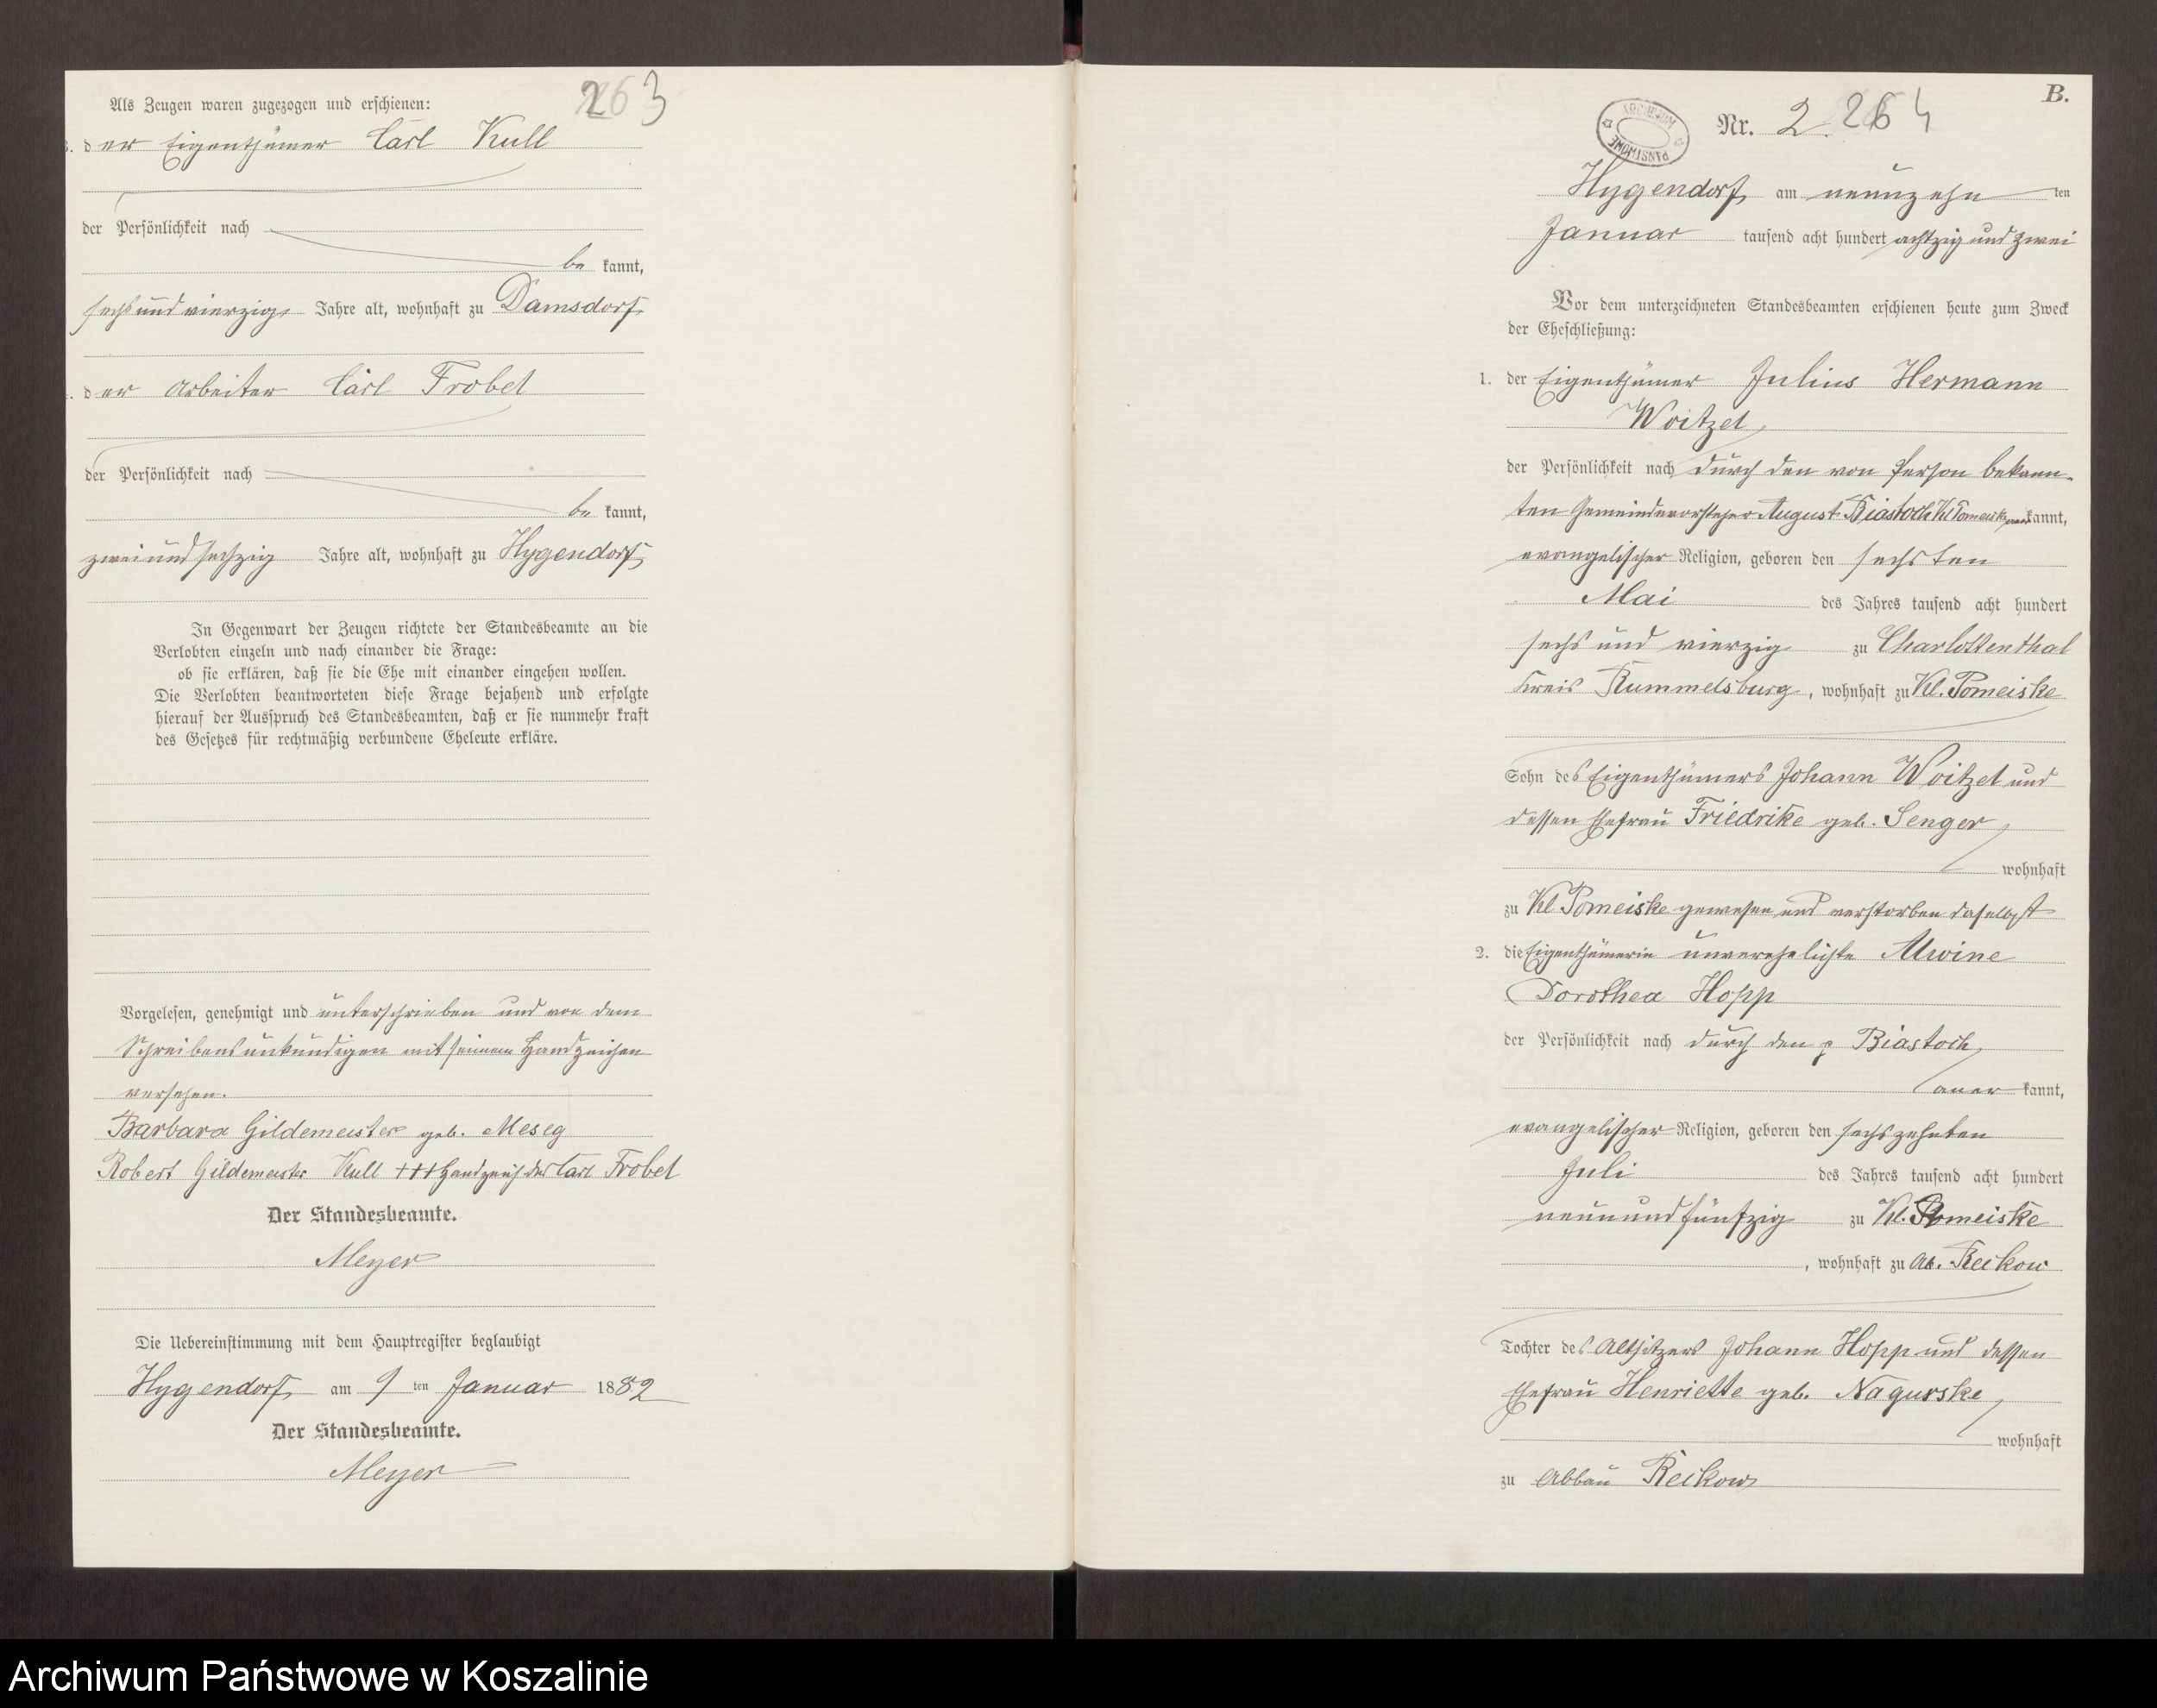 263
Als Zeugen waren zugezogen und erschienen:
3. der Eigenthümer Carl Kull
der Persönlichkeit nach
be kannt,
sechs und vierzig Jahre alt, wohnhaft zu Damsdorf
4. der Arbeiter Carl Frobel
der Persönlichkeit nach
be kannt,
zwei und sechzig Jahre alt, wohnhaft zu Hygendorf
In Gegenwart der Zeugen richtete der Standesbeamte an die
Verlobten einzeln und nach einander die Frage:
ob sie erklären, daß sie die Ehe mit einander eingehen wollen.
Die Verlobten beantworteten diese Frage bejahend und erfolgte
hierauf der Ausspruch des Standesbeamten, daß er sie nunmehr kraft
des Gesetzes für rechtmäßig verbundene Eheleute erkläre.
Vorgelesen, genehmigt und unterschrieben und von dem
Schreibensunkundigen mit seinem Handzeichen
versehen.
Barbara Gildemeister geb. Meseg
Robert Gildemeister Kull +++ Handzeich des Carl Frobel
Der Standesbeamte.
Meyer
Die Uebereinstimmung mit dem Hauptregister beglaubigt
Hygendorf am 9 ten Januar 1882
Der Standesbeamte.
Meyer
B.
ARCHIWUM PAŃSTWOWE
Nr. 2. 264
Hygendorf am neunzehn ten
Januar tausend acht hundert achtzig und zwei
Vor dem unterzeichneten Standesbeamten erschienen heute zum Zweck
der Eheschließung:
1. der Eigenthümer Julius Hermann
Woitzel
der Persönlichkeit nach durch den von Person bekann-
ten Gemeindevorsteher August Biastoch Kl Pomeiske aner kannt,
evangelischer Religion, geboren den sechsten
Mai des Jahres tausend acht hundert
sechs und vierzig zu Charlottenthal
Kreis Rummelsburg, wohnhaft zu Kl. Pomeiske
Sohn des Eigenthümers Johann Woitzel und
dessen Ehefrau Friedrike geb. Senger
wohnhaft
zu Kl Pomeiske gewesen und verstorben daselbst
2. die Eigenthümerin unverehelichte Alwine
Dorothea Hopp
der Persönlichkeit nach durch den p Biastoch
aner kannt,
evangelischer Religion, geboren den sechszehnten
Juli des Jahres tausend acht hundert
neun und fünfzig zu Kl. Pomeiske
, wohnhaft zu Ab. Reckow
Tochter des Altsitzers Johann Hopp und dessen
Ehefrau Henriette geb. Nagurske
wohnhaft
zu Abbau Reckow
Archiwum Państwowe w Koszalinie